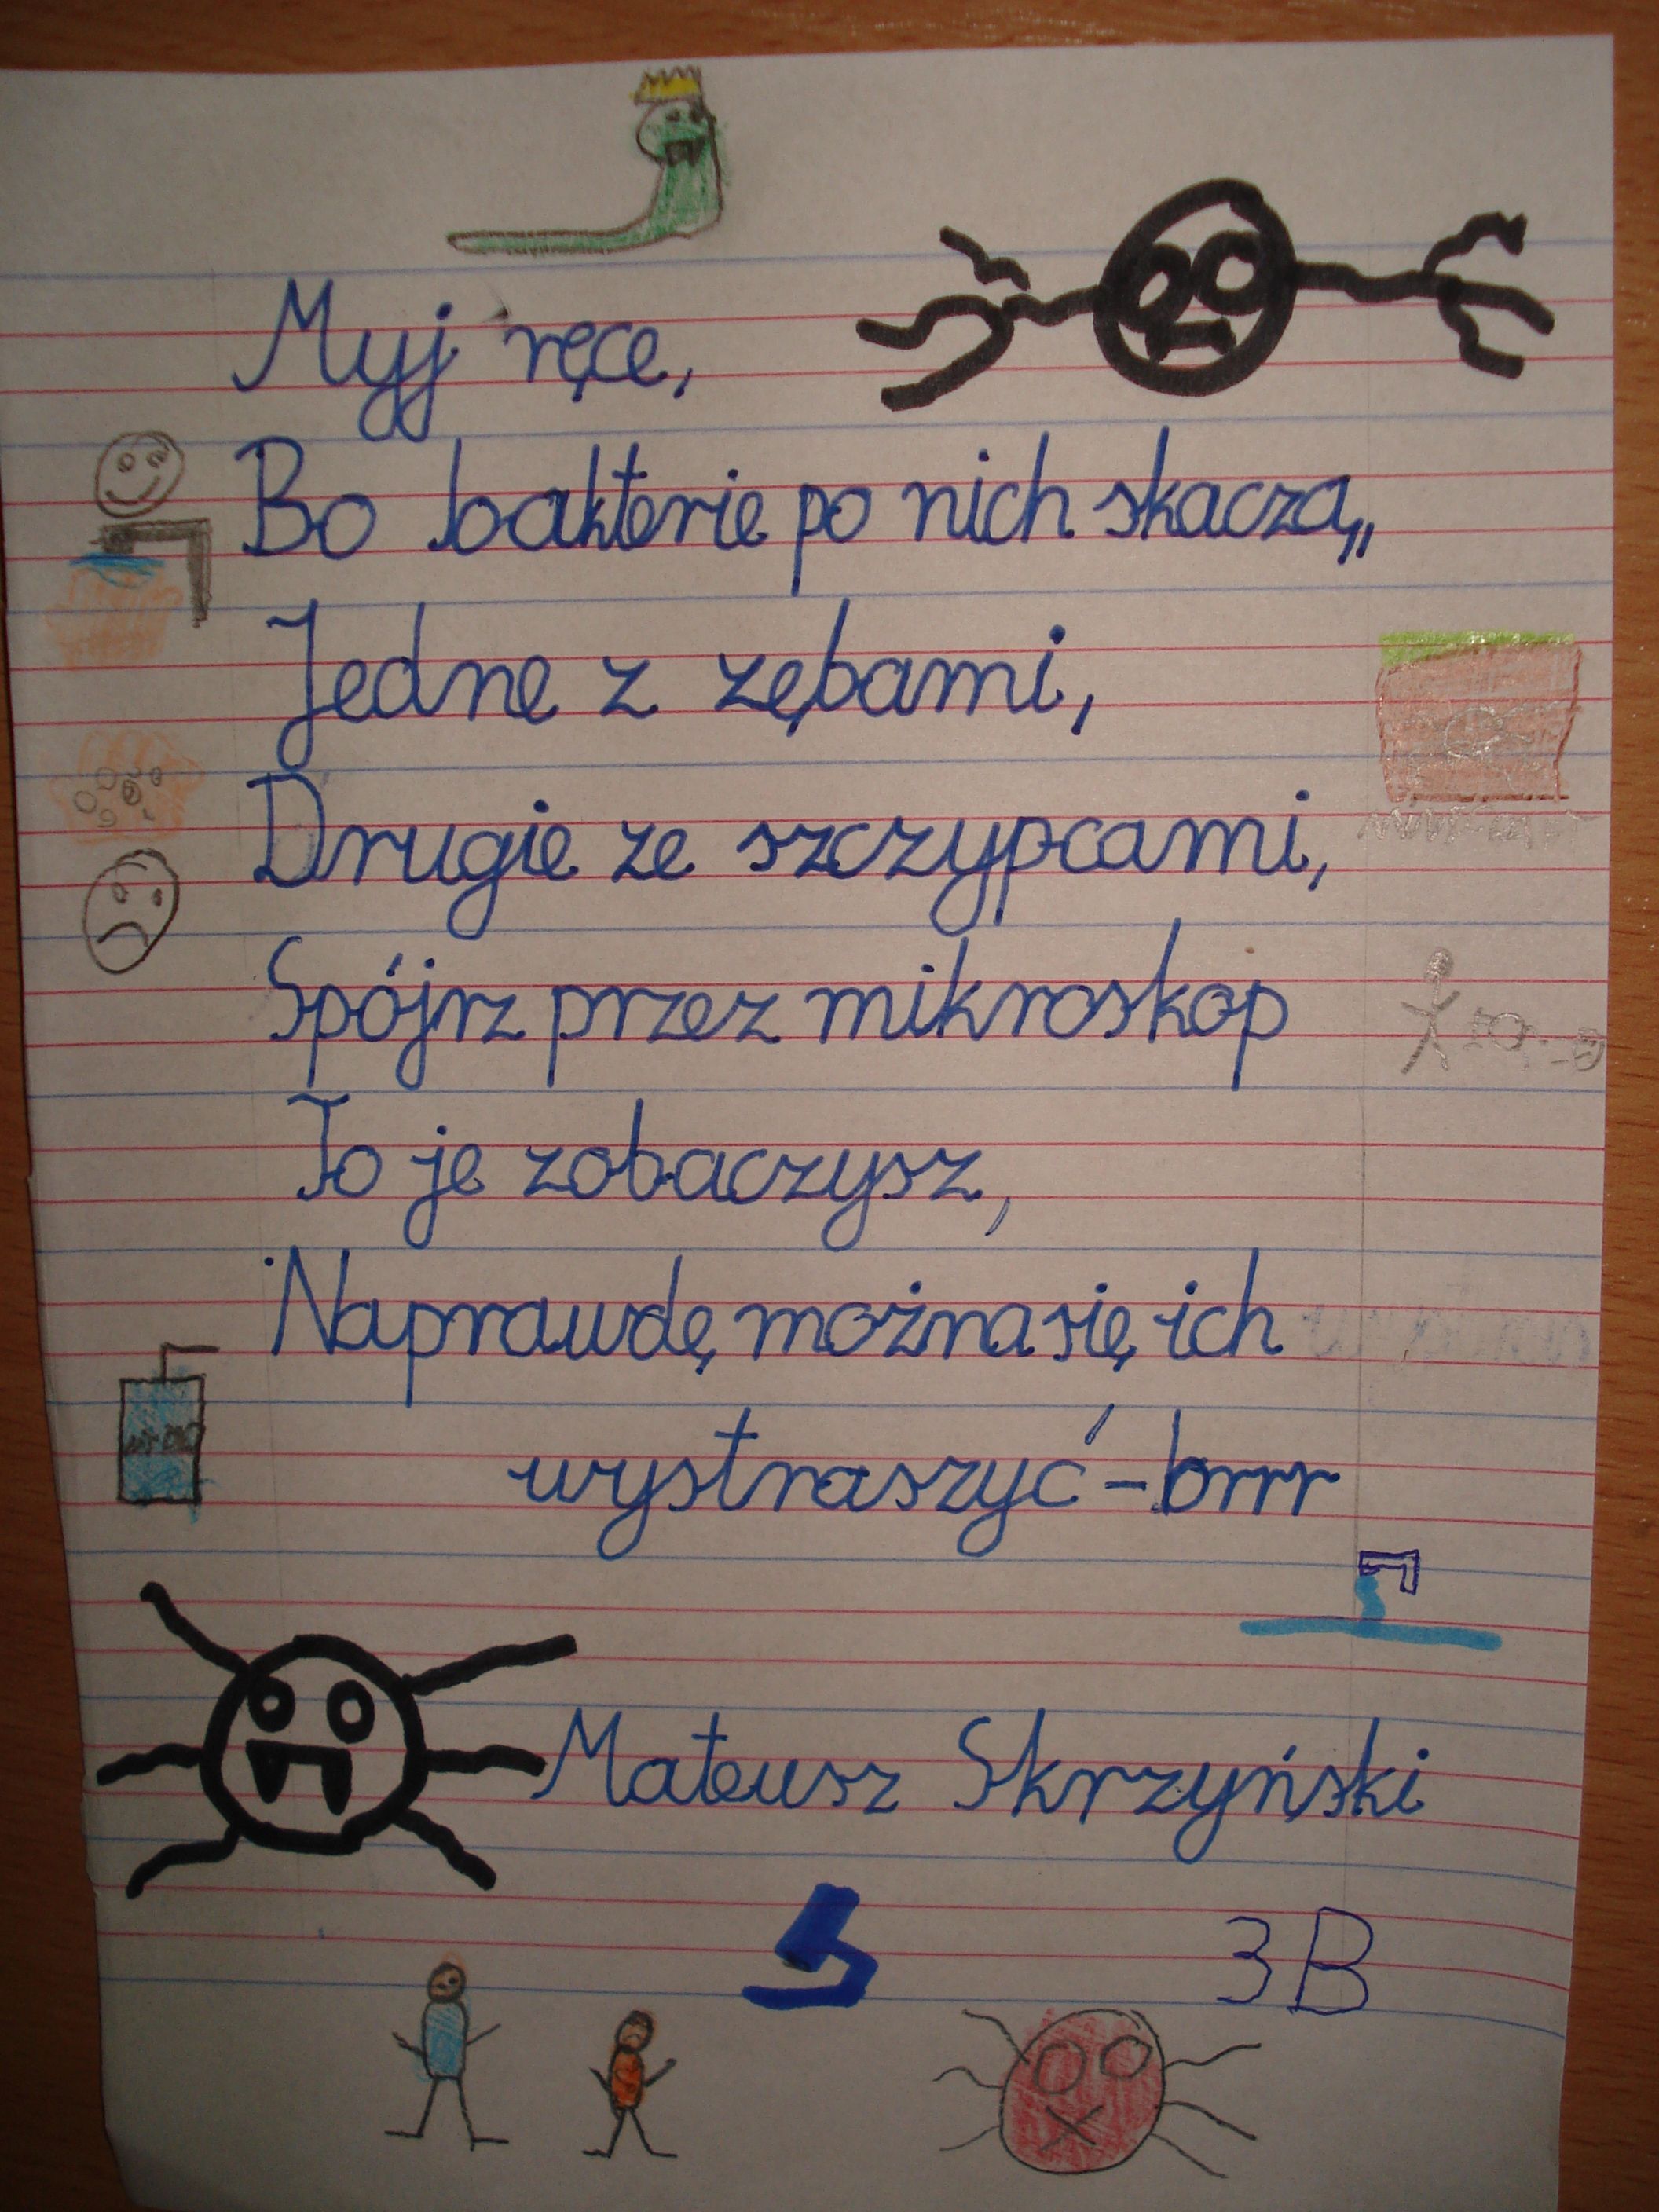 Myj ręce,
Bo bakterie po nich skaczą,,
Jedne z zębami,
Drugie ze szczypcami,
Spójrz przez mikroskop
To je zobaczysz,
Naprawdę można się ich
wystraszyć - brrr
Mateusz Skrzyński
3B